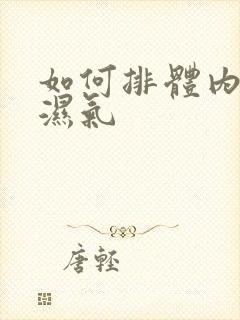 如何排體內
濕氣
唐輕